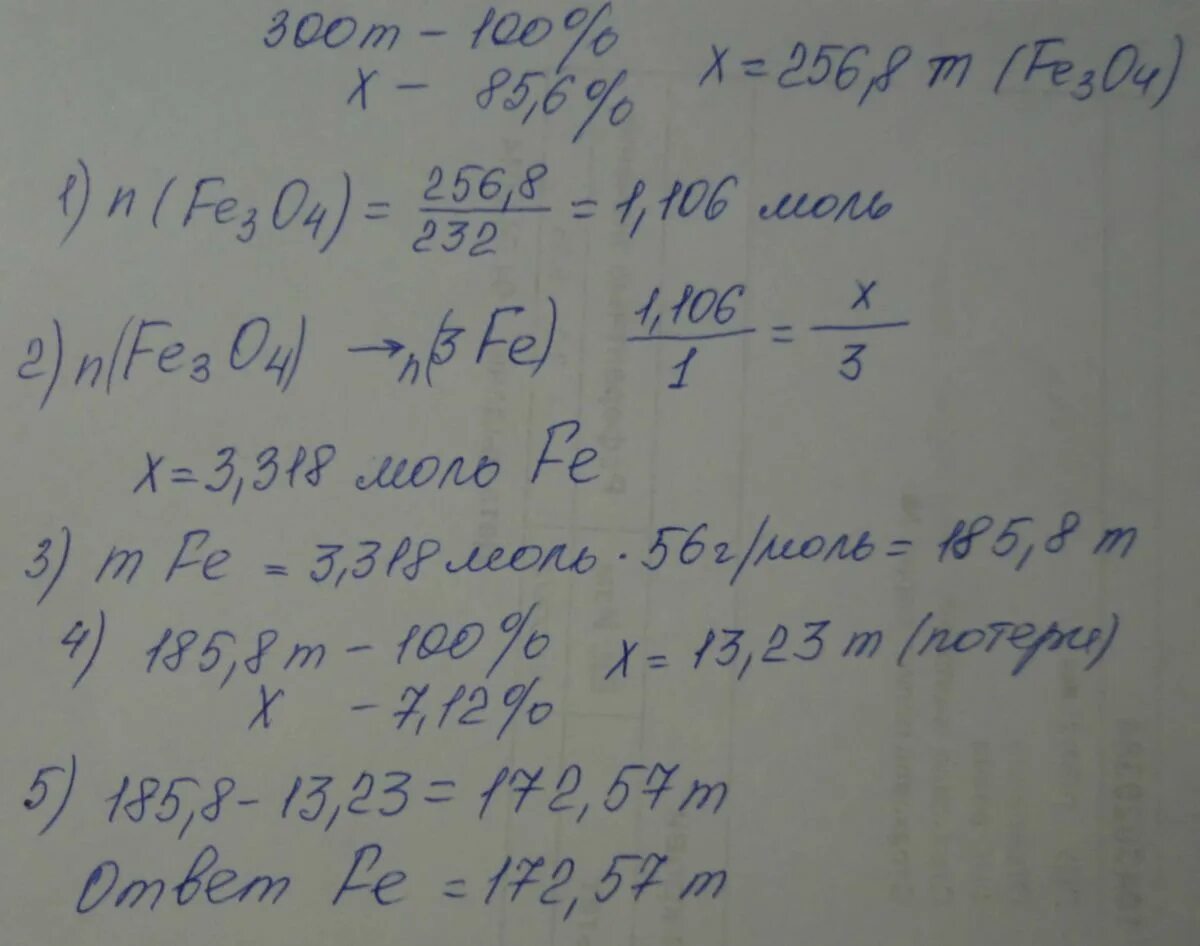 300т – 100%
х – 85,6%
х = 256,8 т (Fe₃O₄)
1) n (Fe₃O₄) = 256,8/232 = 1,106 моль
2) n(Fe₃O₄) → n(3Fe) 1,106/1 = x/3
х = 3,318 моль Fe
3) m Fe = 3,318 моль · 56г/моль = 185,8 т
4) 185,8т – 100%
х – 7,12%
х = 13,23 т (потери)
5) 185,8 – 13,23 = 172,57 т
Ответ Fe = 172,57 т